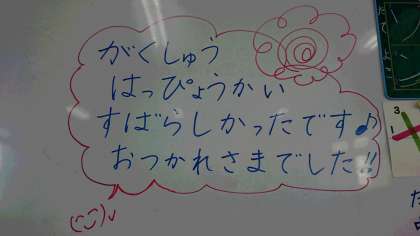 がくしゅう
はっぴょうかい
すばらしかったです♪
おつかれさまでした!!